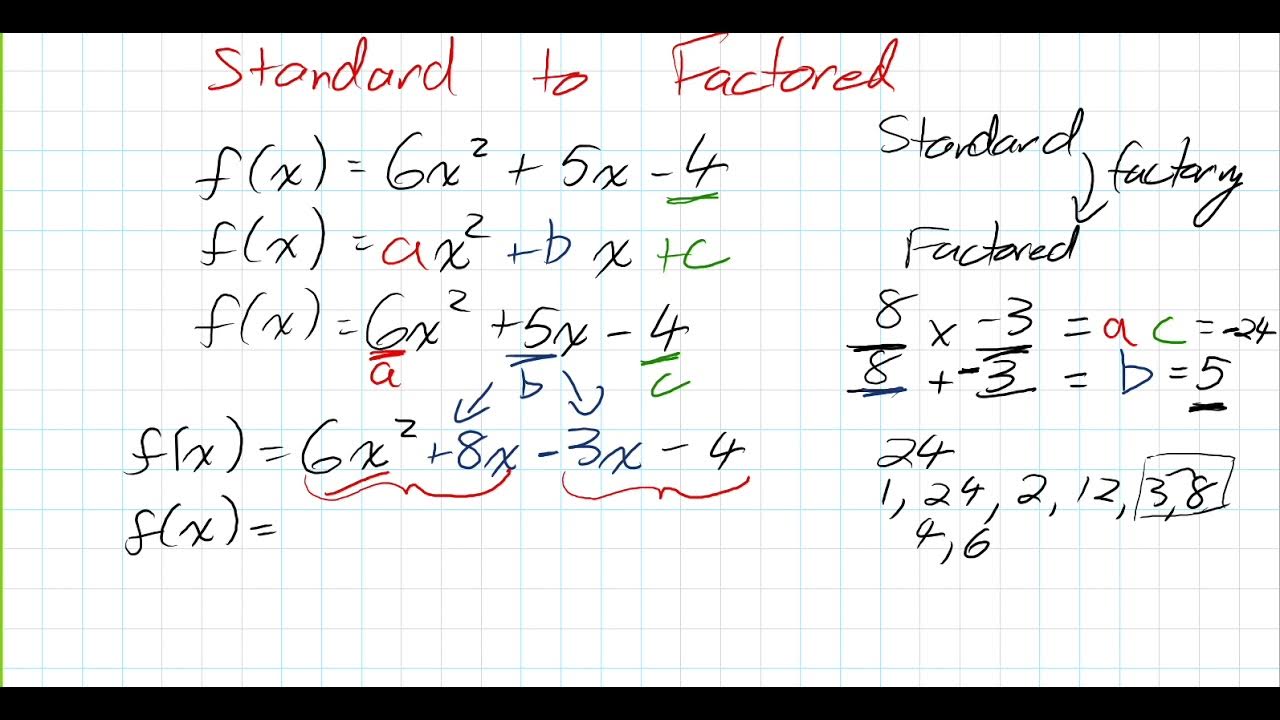 Standard to Factored
f(x) = 6x² + 5x - 4
f(x) = ax² + b x + c
f(x) = 6x² + 5x - 4
a b c
f(x) = 6x² + 8x - 3x - 4
f(x) =
Standard
factoring
Factored
8 x -3 = a c = -24
8 + -3 = b = 5
24
1, 24, 2, 12, 3, 8
4, 6